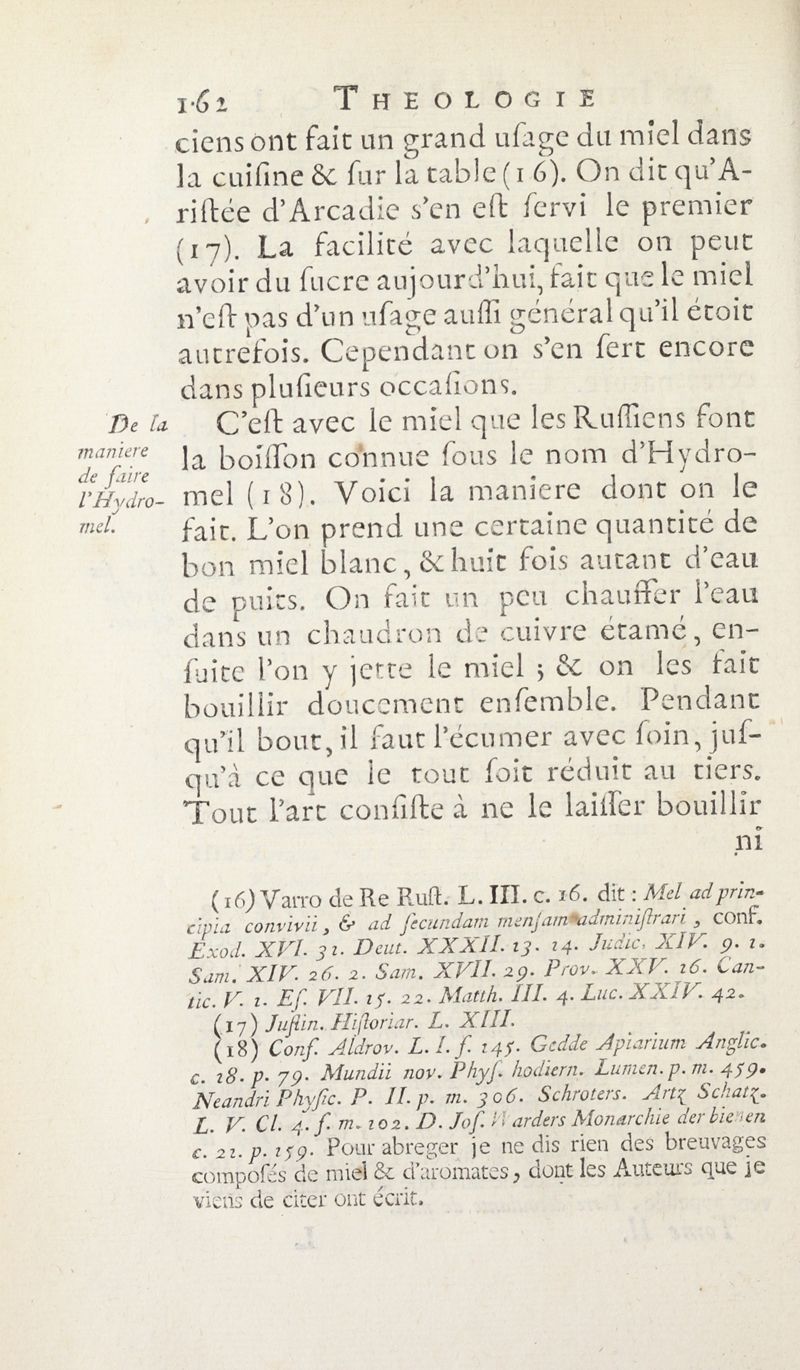 162 THEOLOGIE
ciens ont fait un grand uſage du miel dans
la cuiſine & ſur la table (16). On dit qu'A-
riſtée d'Arcadie s'en eſt ſervi le premier
(17). La facilité avec laquelle on peut
avoir du ſucre aujourd'hui, fait que le miel
n'eſt pas d'un uſage auſſi général qu'il étoit
autrefois. Cependant on s'en ſert encore
dans pluſieurs occaſions.
De la
maniere
de faire
l'Hydro-
mel.
C'eſt avec le miel que les Ruſſiens font
la boiſſon connue ſous le nom d'Hydro-
mel (18). Voici la maniere dont on le
fait. L'on prend une certaine quantité de
bon miel blanc, & huit fois autant d'eau
de puits. On fait un peu chauffer l'eau
dans un chaudron de cuivre étamé, en-
ſuite l'on y jette le miel ; & on les fait
bouillir doucement enſemble. Pendant
qu'il bout, il faut l'écumer avec ſoin, juſ-
qu'à ce que le tout ſoit réduit au tiers.
Tout l'art conſiſte à ne le laiſſer bouillir
ni
(16) Varro de Re Ruſt. L. III. c. 16. dit : Mel ad prin-
cipia convivii, & ad ſecundam menſam adminiſtrari, conf.
Exod. XVI. 31. Deut. XXXII. 13. 14. Judic. XIV. 9. 1.
Sam. XIV. 26. 2. Sam. XVII. 29. Prov. XXV. 16. Can-
tic. V. 1. Eſ. VII. 15. 22. Matth. III. 4. Luc. XXIV. 42.
(17) Juſtin. Hiſtoriar. L. XIII.
(18) Conf. Aldrov. L. I. f. 145. Gedde Apiarium Anglic.
c. 18. p. 79. Mundii nov. Phyſ. hodiern. Lumen. p. m. 459.
Neandri Phyſic. P. II. p. m. 306. Schroters. Artz Schatz.
L. V. Cl. 4. f. m. 102. D. Joſ. Warders Monarchie der bienen
c. 21. p. 159. Pour abreger je ne dis rien des breuvages
compoſés de miel & d'aromates, dont les Auteurs que je
viens de citer ont écrit.